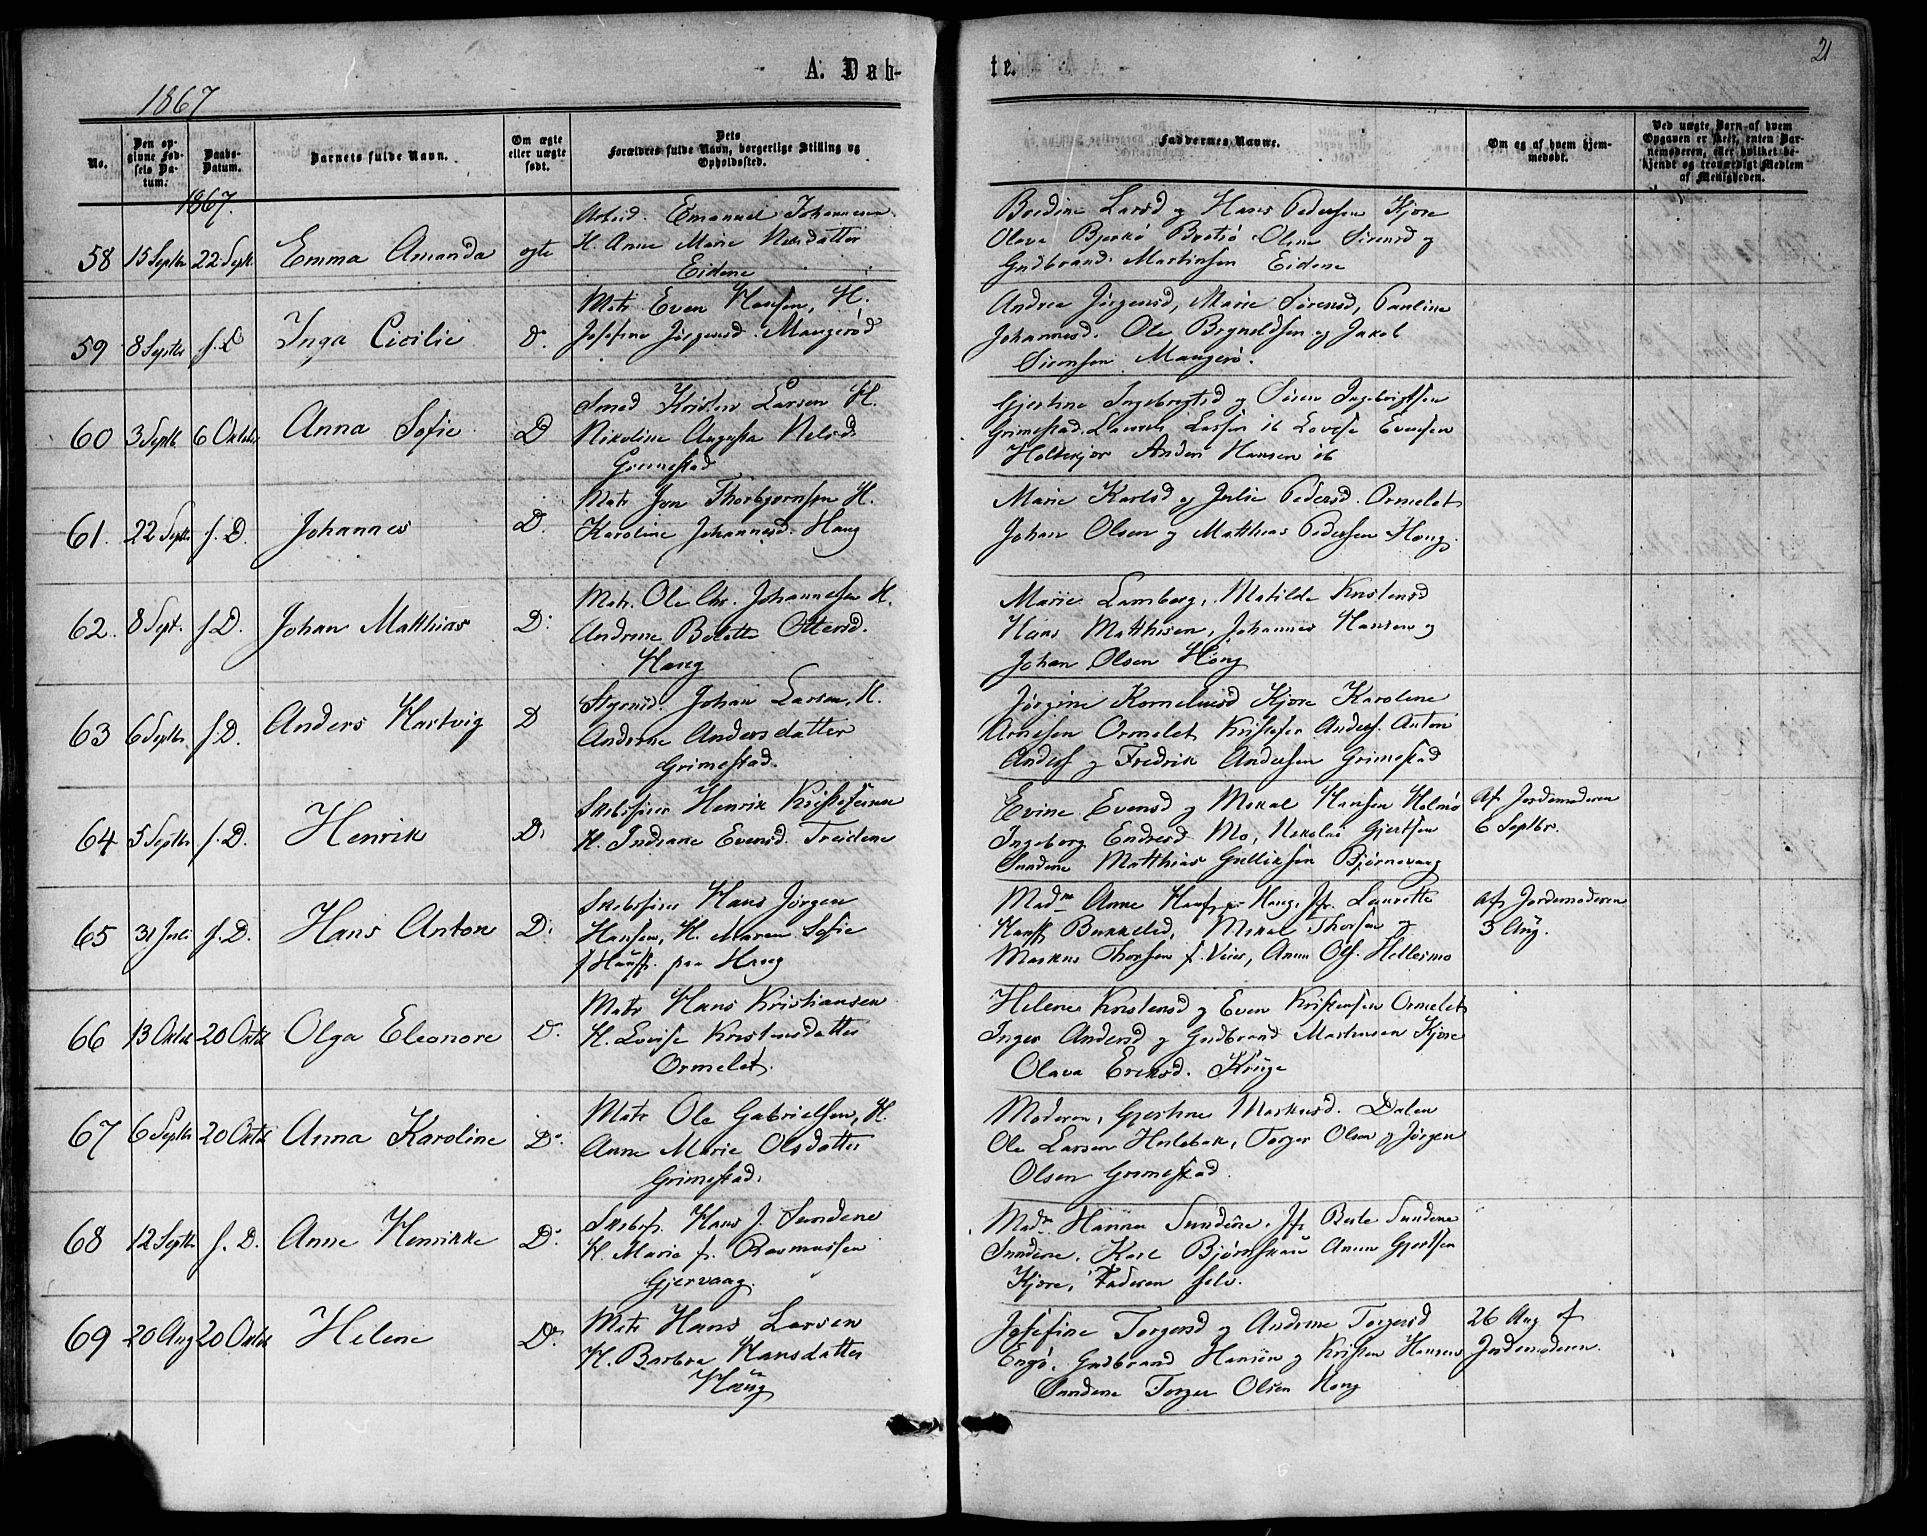 A. Døb-
te.
21
1867
No.
Den opgivne Fødsels Datum.
Daabs-Datum.
Barnets fulde Navn.
Om ægte eller uægte født.
Dets Forældres fulde Navn, borgerlige Stilling og Opholdssted.
Faddernes Navne.
Om og af hvem hjemmedøbt.
Ved uægte Barn af hvem Opgaven er skeet, enten Barnemoderen, eller hvilket bekjendt og troværdigt Medlem af Menigheden.
1867.
58 15 Septbr 22 Sept. Emma Amanda ægte
Arbeid. Emanuel Johannesen
H. Anne Marie Nilsdatter
Eidene
Bordine Larsd og Hans Pedersen Kjøre
Olava Bjerkø Brøtsø Oline Sørensd og
Gudbrand Martinsen Eidene
59 8 Septbr s. D Inga Cicilie D.
Matr Even Hansen, H.
Josefine Jørgensd. Mangerød
Andrea Jørgensd, Marie Sørensd, Pauline
Johannesd. Ole Brynildsen og Jakob
Sørensen Mangerø.
60 3 Septb 6 Oktobr Anna Sofie D
Smed Kristen Larsen H.
Nikoline Augusta Nilsd.
Grimestad
Gjertine Ingebregtsd og Søren Ingebrigtsen
Grimestad. Laurits Larsen ib Lovise Evensen
Holtekjær Anders Hansen ib
61. 22 Septb s. D. Johannes D.
Matr Jon Thorbjørnsen H.
Karoline Johannesd. Haug
Marie Karlsd og Julie Pedersd. Ormelet
Johan Olsen og Matthias Pedersen Haug.
62. 8 Sept. s. D. Johan Matthias D.
Matr. Ole Chr. Johannesen H.
Andrine Bolette Ottersd.
Haug
Marie Lamberg, Matilde Kristensd
Hans Mathisen, Johannes Hansen og
Johan Olsen Haug
63 6 Septbr s. D. Anders Hartvig D
Styrmd. Johan Larsen, H.
Andrine Andersdatter
Grimestad.
Jørgine Korneliusd Kjøre Karoline
Arnesen Ormelet Kristofer Anders. Anton
Anders og Fredrik Andersen Grimestad
64 5 Septbr s. D. Henrik D.
Skibsfører Henrik Kristofersen
H. Indiane Evensd. Treidene
Evine Evensd og Mikal Hansen Holmø
Ingeborg Endresd Mo, Nikolai Gjertsen
Sundene Matthias Gulliksen Bjørnevaag
Af Jordemoderen
6 Septbr.
65 31 Juli s. D. Hans Anton D.
Skibsfører Hans Jørgen
Hansen, H. Maren Sofie
f Hans. paa Haug
Madm Anne Hans Haug, Jfr. Laurette
Hans Bukkelid, Mikal Thorsen og
Markus Thorsen f. Veier, Anun Ols. Hellesmo
Af Jordemoderen
3 Aug.
66 13 Oktob 20 Oktb Olga Eleonore D.
Matr Hans Kristiansen
H. Lovise Kristensdatter
Ormelet.
Helene Kristensd og Even Kristensen Ormelet
Inger Andersd og Gudbrand Martinsen Kjøre
Olava Eriksd. Krüge
67 6 Septbr 20 Oktb Anna Karoline D.
Matr Ole Gabrielsen, H.
Anne Marie Olsdatter
Grimestad.
Moderen, Gjertine Markusd. Dalen
Ole Larsen Heslebak, Torger Olsen og Jørgen
Olsen Grimestad.
68 12 Septbr s. D. Anne Henrikke D.
Skibsf. Hans J. Sundene
H. Marie f. Rasmussen
Gjervaag.
Madm Hanna Sundene, Jfr Berte Sundene
Sundene, Karl Bjørnskau Anun Gjertsen
Kjøre, Faderen selv.
69 20 Aug 20 Oktb Helene D.
Matr Hans Larsen
H. Barbra Hansdatter
Haug
Josefine Torgersd og Andrine Torgersd
Engø. Gudbrand Hansen og Kristen Hansen
Sundene Torger Olsen Haug
26 Aug af
Jordemoderen.